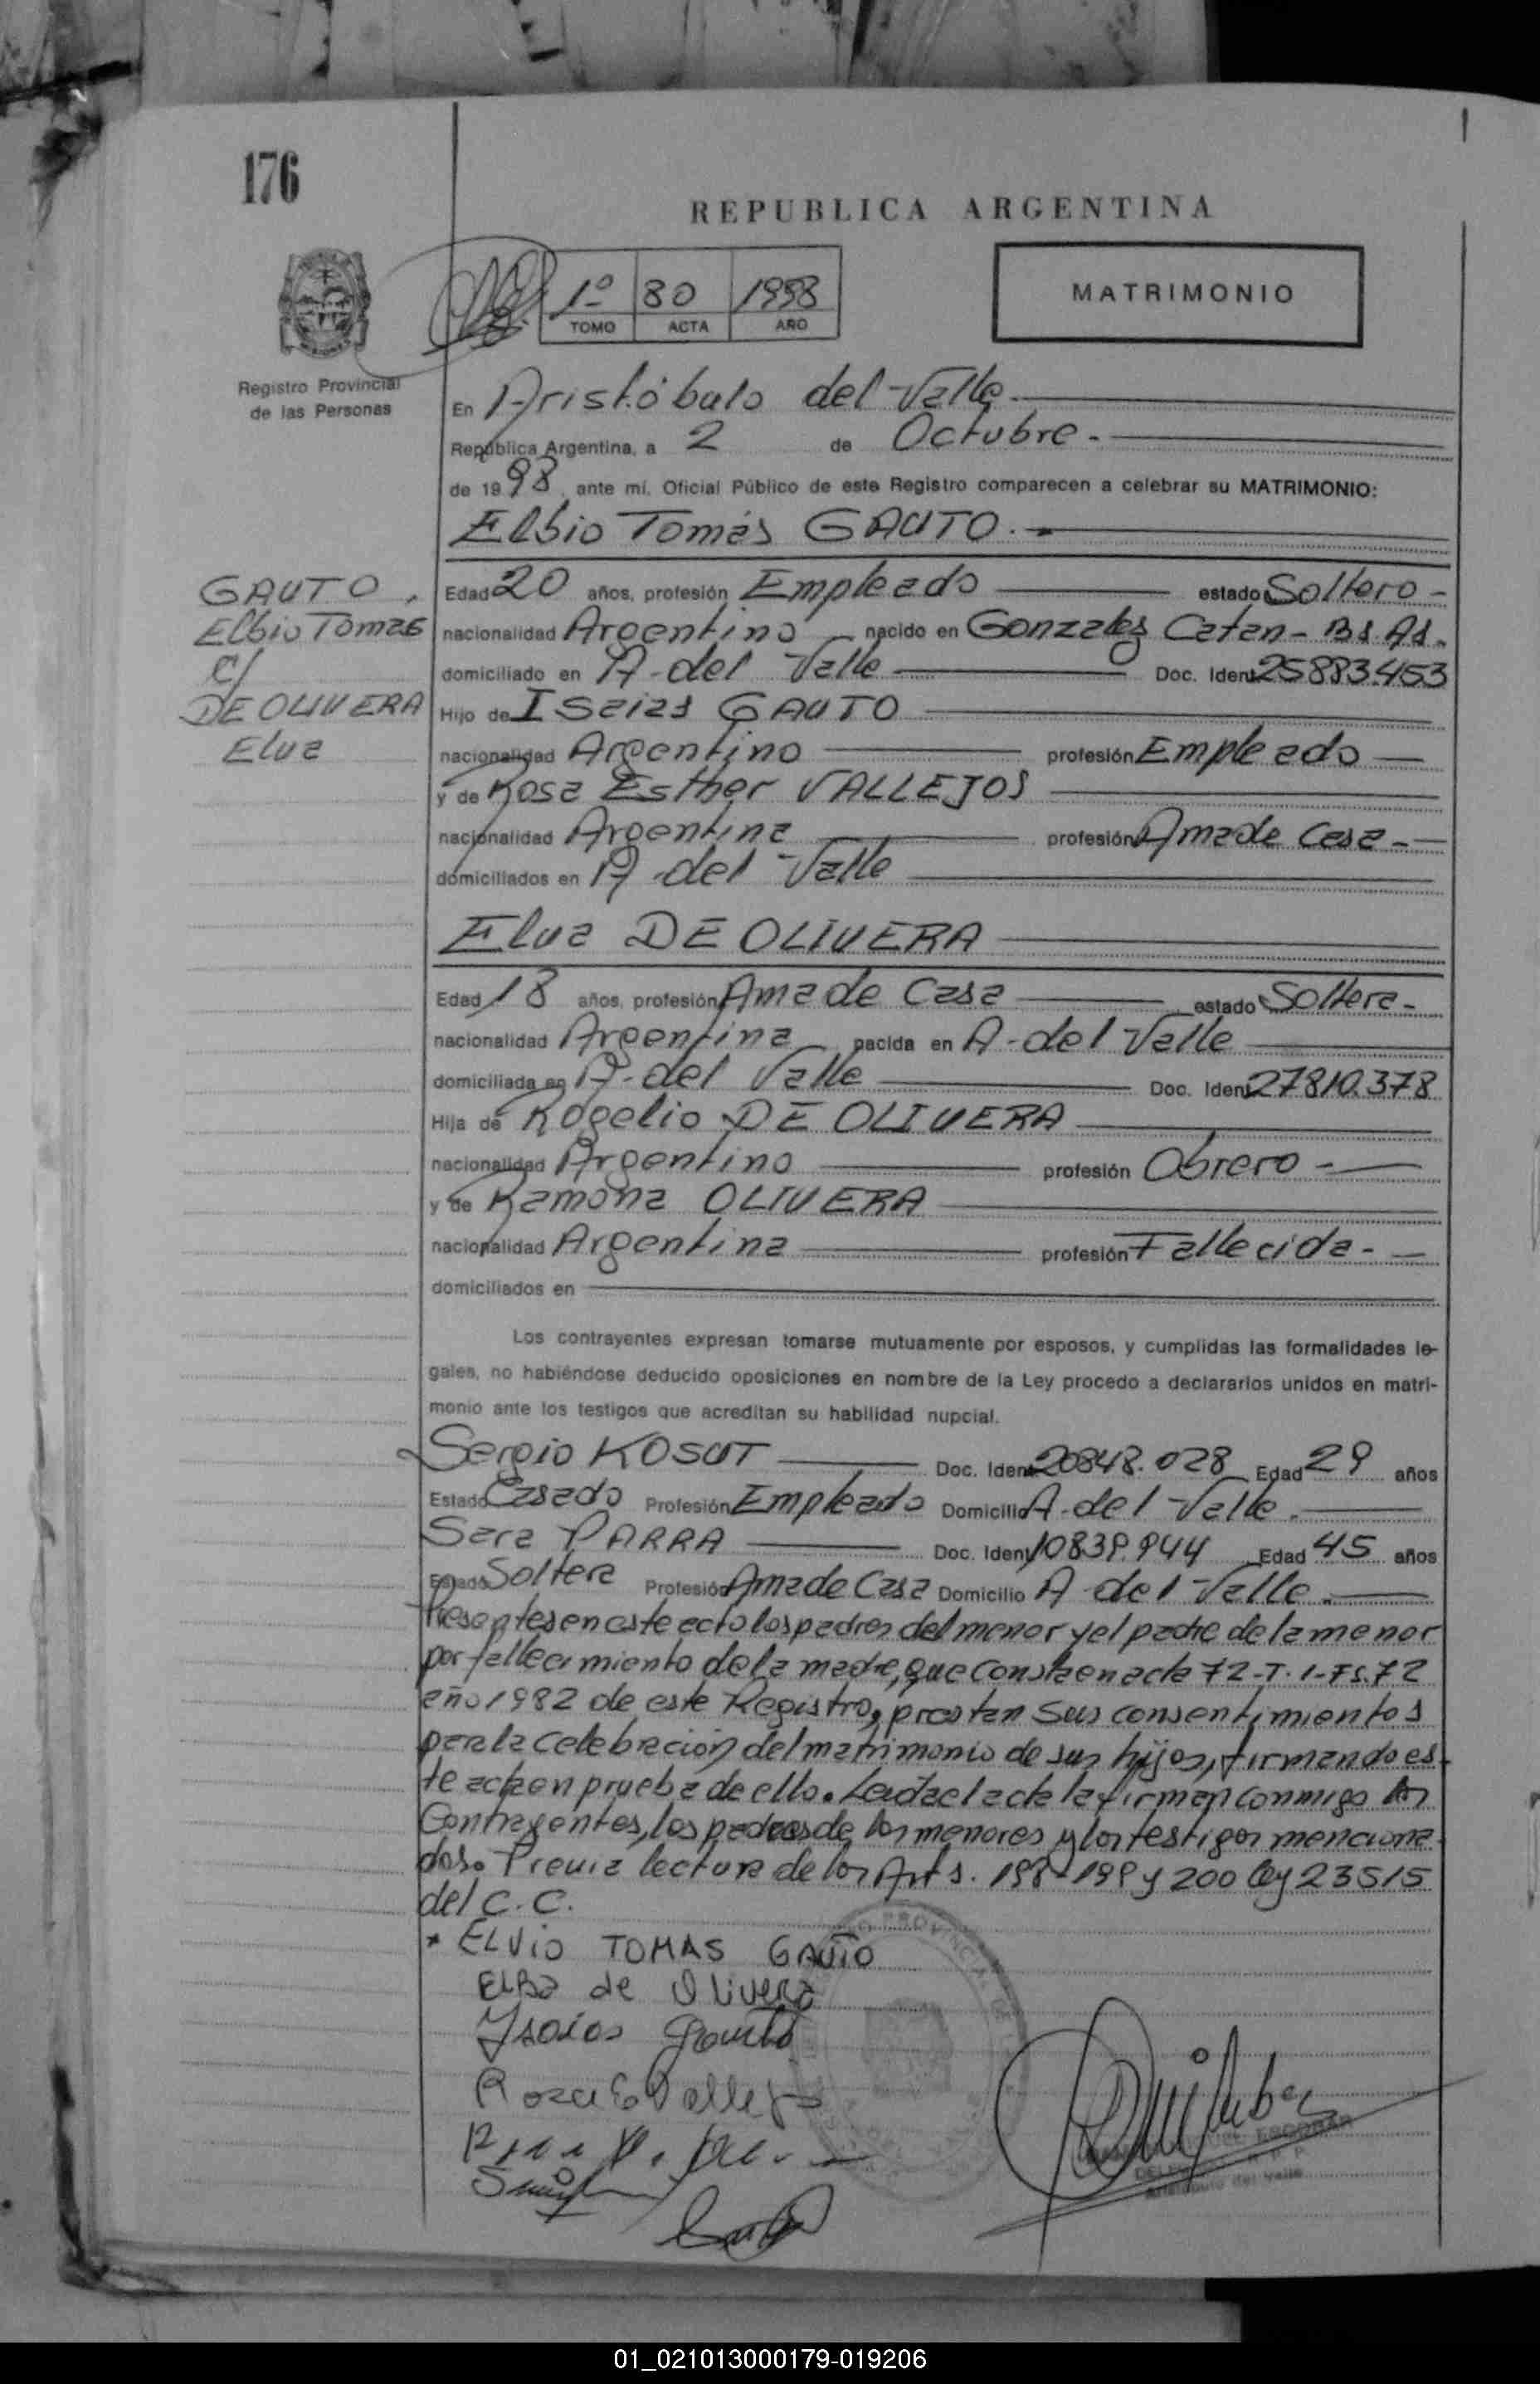 176
REPUBLICA ARGENTINA
1º 80 1998
TOMO ACTA AÑO
MATRIMONIO
Registro Provincial
de las Personas
En Aristóbulo del Valle
República Argentina, a 2 de Octubre.
de 1998, ante mí, Oficial Público de este Registro comparecen a celebrar su MATRIMONIO:
Elbio Tomás GAUTO.
GAUTO,
Elbio Tomas
c/
DE OLIVERA
Elva
Edad 20 años, profesión Empleado estado Soltero-
nacionalidad Argentino nacido en Gonzales Catan- Bs.As.
domiciliado en A- del Valle Doc. Ident. 25883.453
Hijo de Isaias GAUTO
nacionalidad Argentino profesión Empleado
y de Rosa Esther VALLEJOS
nacionalidad Argentina profesión Ama de Casa-
domiciliados en A- del Valle
Elva DE OLIVERA
Edad 18 años, profesión Ama de Casa estado Soltera-
nacionalidad Argentina nacida en A- del Valle
domiciliada en A- del Valle Doc. Ident. 27810.378
Hija de Rogelio DE OLIVERA
nacionalidad Argentino profesión Obrero-
y de Ramona OLIVERA
nacionalidad Argentina profesión Fallecida-
domiciliados en
Los contrayentes expresan tomarse mutuamente por esposos, y cumplidas las formalidades le-
gales, no habiéndose deducido oposiciones en nombre de la Ley procedo a declararlos unidos en matri-
monio ante los testigos que acreditan su habilidad nupcial.
Sergio KOSUT Doc. Ident. 20848.028 Edad 29 años
Estado Casado Profesión Empleado Domicilio A- del Valle.
Sara PARRA Doc. Ident. 10839.944 Edad 45 años
Estado Soltera Profesión Ama de Casa Domicilio A del Valle.
Presentes en este acto los padres del menor y el padre de la menor
por fallecimiento de la madre, que consta en acta 72-T.1-Fs.72
año 1982 de este Registro, prestan sus consentimientos
para la celebración del matrimonio de sus hijos, firmando es-
te acta en prueba de ello. Leida el acta la firman conmigo los
Contrayentes, los padres de los menores y los testigos menciona-
dos. Previa lectura de los Arts. 198-199 y 200 ley 23515
del C.C.
* ELVIO TOMAS GAUTO
ELBA de Olivera
Isaias Gauto
Rosa E Vallejo
ESCOBAR
Aristóbulo del Valle
01_021013000179-019206